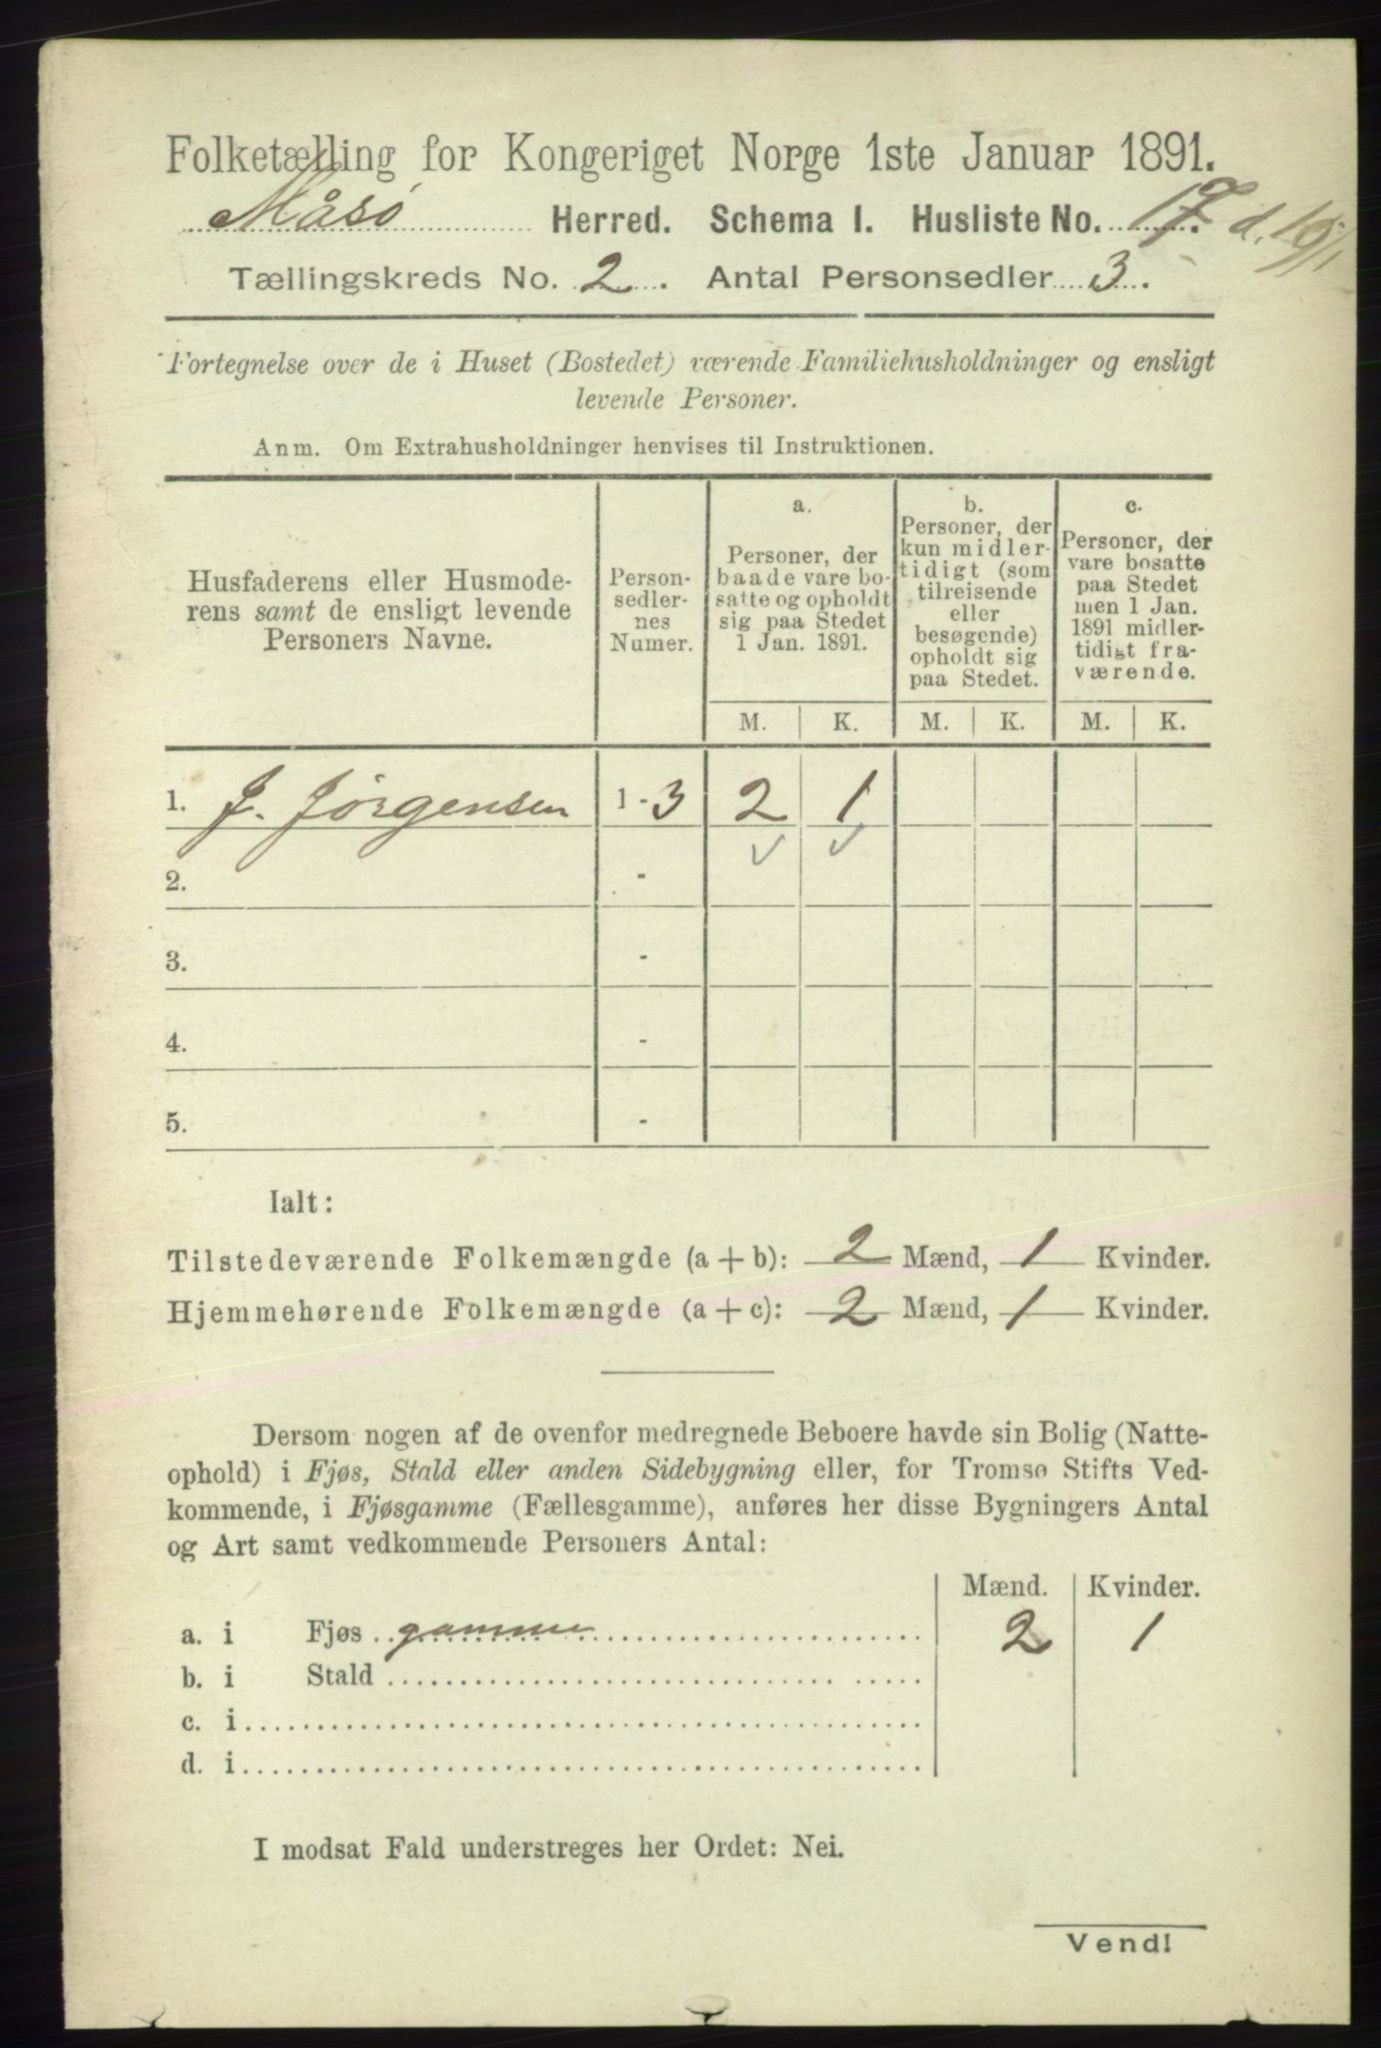 Folketælling for Kongeriget Norge 1ste Januar 1891.
Måsø Herred. Schema I. Husliste No. 17. d. 10/1
Tællingskreds No. 2. Antal Personsedler 3.
Fortegnelse over de i Huset (Bostedet) værende Familiehusholdninger og ensligt
levende Personer.
Anm. Om Extrahusholdninger henvises til Instruktionen.
Husfaderens eller Husmode-
rens samt de ensligt levende
Personers Navne.
Person-
sedler-
nes
Numer.
a.
Personer, der
baade vare bo-
satte og opholdt
sig paa Stedet
1 Jan. 1891.
b.
Personer, der
kun midler-
tidigt (som
tilreisende
eller
besøgende)
opholdt sig
paa Stedet.
c.
Personer, der
vare bosatte
paa Stedet
men 1 Jan.
1891 midler-
tidigt fra-
værende.
M. K. M. K. M. K.
1. J. Jørgensen 1 - 3 2 1
2. -
3. -
4. -
5. -
Ialt:
Tilstedeværende Folkemængde (a + b): 2 Mænd, 1 Kvinder.
Hjemmehørende Folkemængde (a + c): 2 Mænd, 1 Kvinder.
Dersom nogen af de ovenfor medregnede Beboere havde sin Bolig (Natte-
ophold) i Fjøs, Stald eller anden Sidebygning eller, for Tromsø Stifts Ved-
kommende, i Fjøsgamme (Fællesgamme), anføres her disse Bygningers Antal
og Art samt vedkommende Personers Antal:
Mænd. Kvinder.
a. i Fjøs gamme 2 1
b. i Stald
c. i
d. i
I modsat Fald understreges her Ordet: Nei.
Vend!